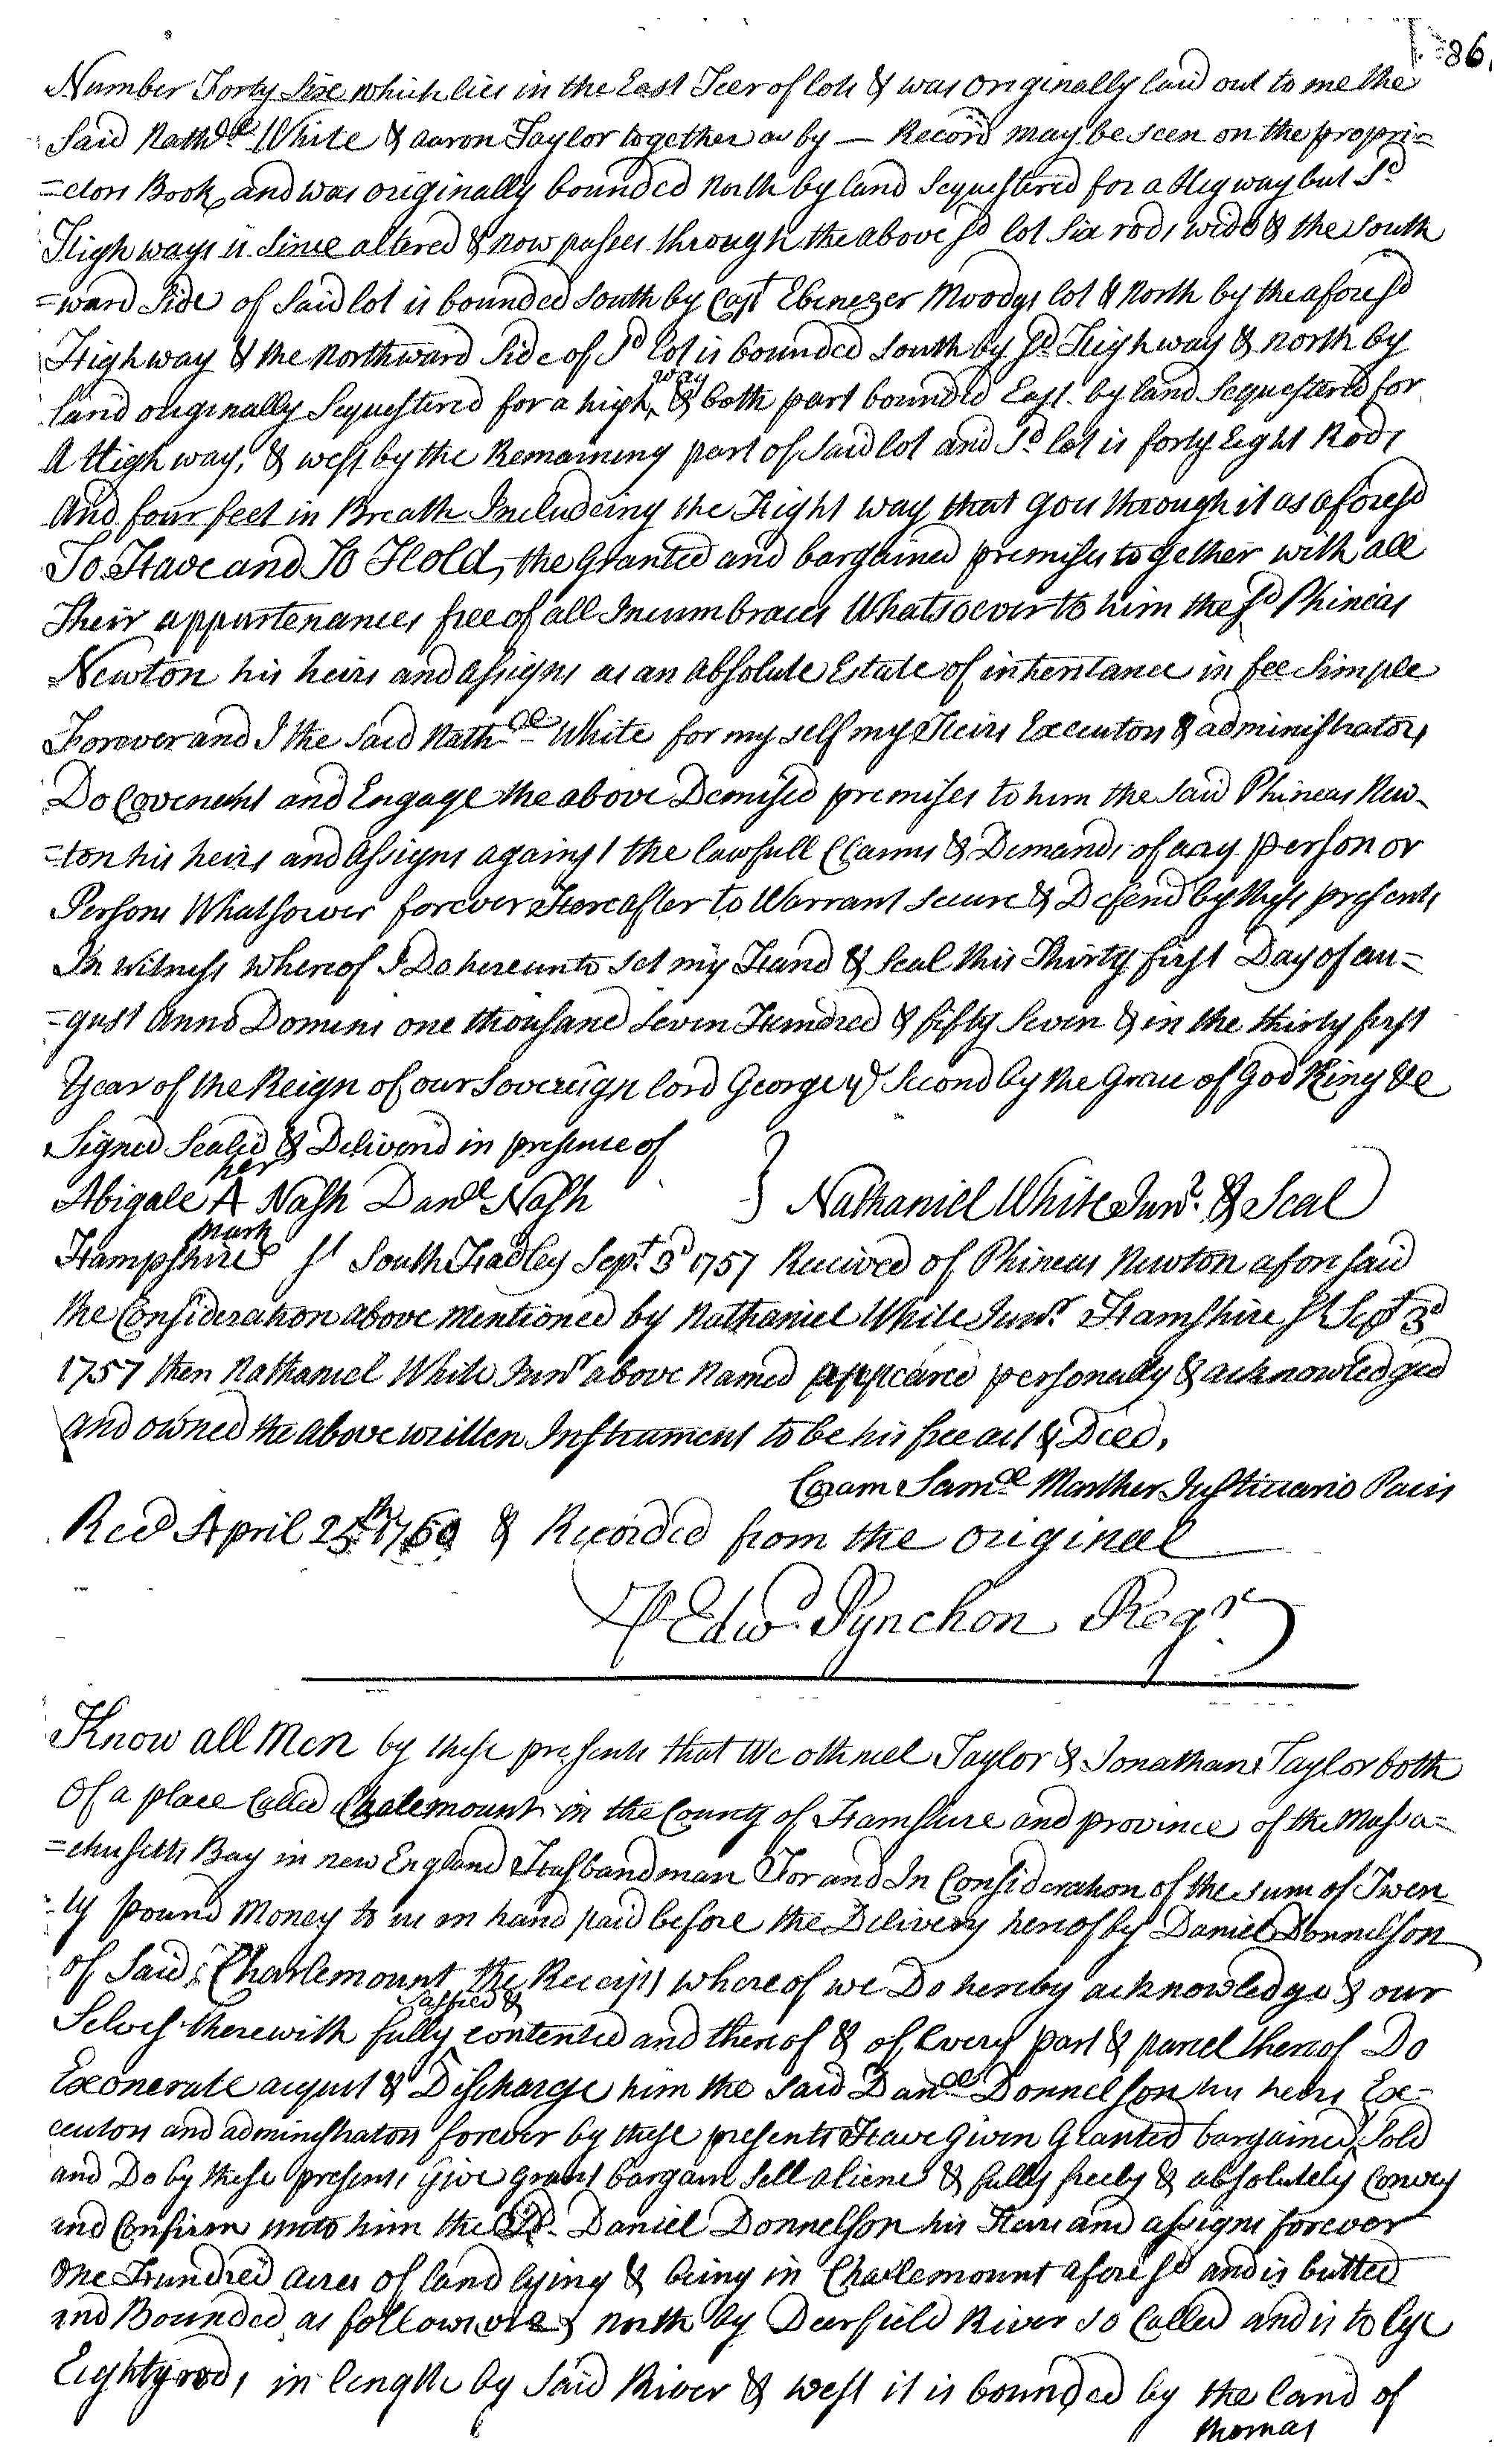 86.
Number Forty Six which lies in the East Teer of lots & was originally laid out to me the
Said Nathll White & aaron Taylor together as by — Record may be seen on the propri=
=etors Book, and was originally bounded North by land Sequestered for a Higway but Sd
High ways is Since altered & now passes through the above sd lot Six rods wide & the South
=ward Side of Said lot is bounded South by Capt Ebenezer Moodys lot & North by the aforesd
Highway & the Northward Side of Sd lot is bounded South by sd Highway & north by
land originally Sequestered for a high way & both part bounded East by land Sequestered for
A High way, & west by the Remaining part of Said lot and Sd lot is forty Eight Rods
And four feet in Breath Includeing the Hight way that goes through it as aforesd
To Have and To Hold, the Granted and bargained premises together with all
Their appurtenances free of all Incumbraces Whatsoever to him the sd Phineas
Newton his heirs and assigns as an absolute Estate of inheritance in fee Simple
Forever and I the Said Nathll White for my self my Heirs Executors & administrators
Do Covenant and Engage the above Demised premises to him the Said Phineas New-
=ton his heirs and assigns against the lawfull Claims & Demands of any person or
Persons Whatsower forever Hereafter to Warrant Secure & Defend by these presents
In witness whereof I Do hereunto set my Hand & Seal this Thirty first Day of au=
=gust Anno Domini one thousand Seven Hundred & fifty Seven & in the thirty first
Year of the Reign of our Sovereign lord George ye Second by the Grace of God King &c
Signed Sealed & Deliverd in presence of
Abigale her A mark Nash Danll Nash } Nathaniel White Junr. & Seal
Hampshire Ss South Hadley Sept. 3d 1757 Received of Phineas Newton afore said
the Consideration above Mentioned by Nathaniel White Junr. Hamshire Ss Sept 3d
1757 then Nathaniel White Junr above Named appeared personally & acknowledged
and owned the above written Instrument to be his free act & Deed,
Coram Samll Marther Justiciario Pacis
Recd April 25th 1760 & Recorded from the original
P Edwd Pynchon Regr
Know all Men by these presents that We othniel Taylor & Jonathan Taylor both
Of a place Called Charlemount in the County of Hamshire and province of the Massa=
=chusetts Bay in new England Husbandman For and In Consideration of the sum of Twen
ty pound Money to us in hand paid before the Delivery hereof by Daniel Donnelson
of Said Charlemount the Receipt whereof we Do hereby acknowledge & our
Selves therewith fully Satisfied & contented and thereof & of Every part & parcel thereof Do
Exonerate acquit & Discharge him the Said Danll Donnelson his heirs Ex=
ecutors and administrators forever by these presents Have Given Granted bargained Sold
and Do by these presents give grant bargain Sell aliene & fully freely & absolutely Convey
and Confirm unto him the Sd Daniel Donnelson his Heirs and assigns forever
One Hundred acres of land lying & being in Charlemount aforesd and is butted
and Bounded as follow north by Deerfield River So Called and is to lye
Eighty rods in length by Said River & west it is bounded by the land of
thomas